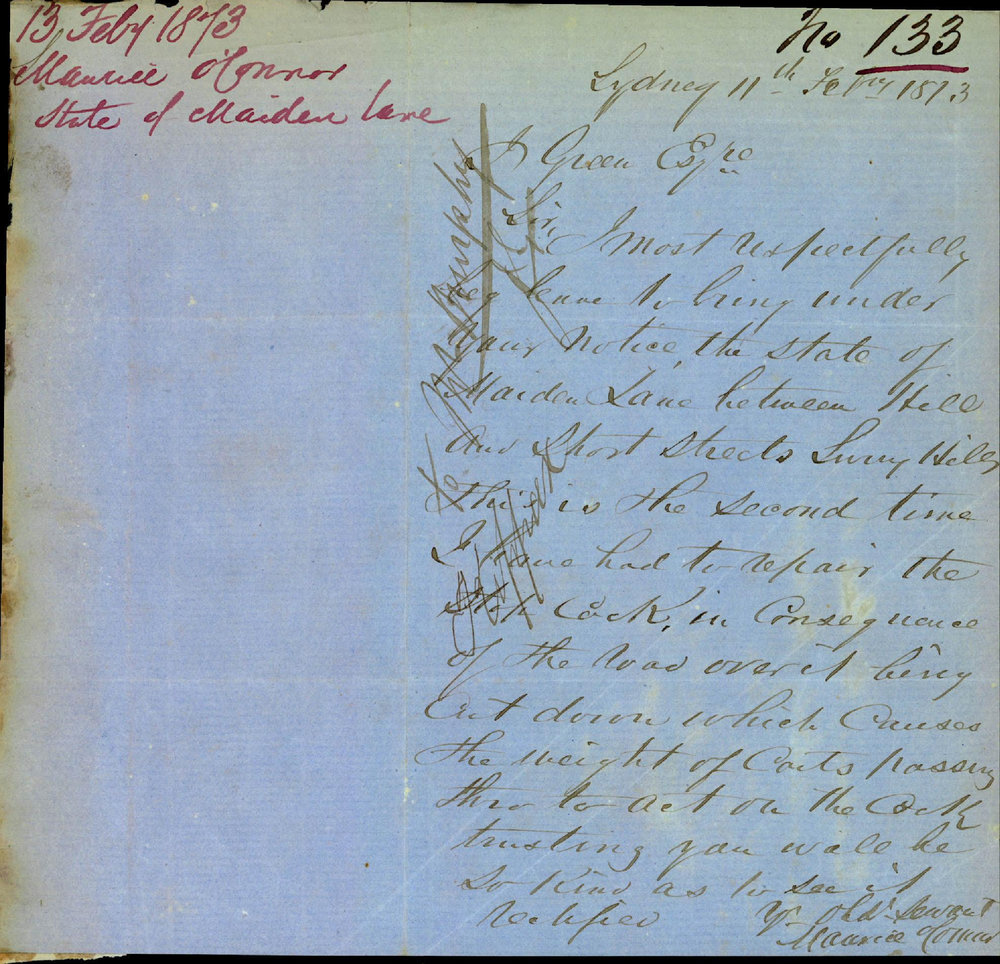 13 Feby 1873
Maurice O'Connor
State of Maiden Lane
No 133
Sydney 11th Febry 1873
J Green Esqre
Sir, I most respectfully
beg leave to bring under
your notice, the state of
Maiden Lane between Hill
and Short Streets Surry Hills
this is the second time
I have had to repair the
Stop Cock, in Consequence
of the road over it being
Cut down which Causes
the weight of Carts passing
thro to act on the Cock
trusting you will be
so kind as to see it
rectified
Yr Obdt Servant
Maurice O'Connor
Murphy